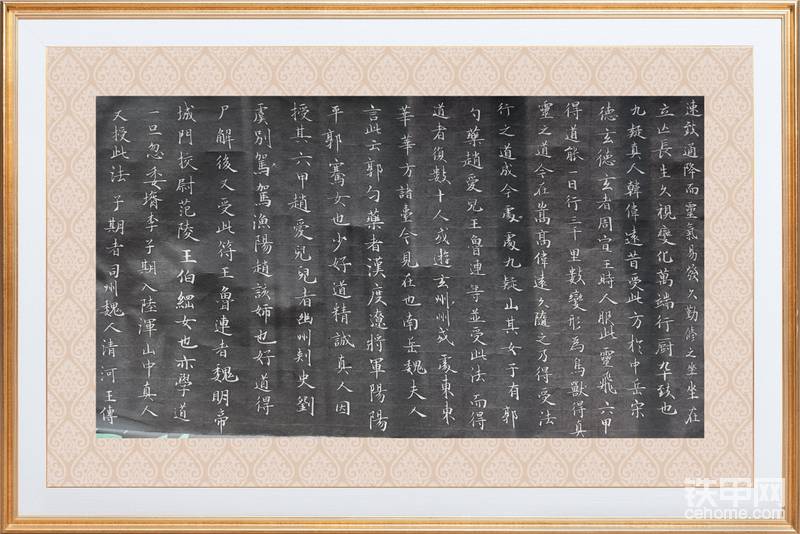 速致通降而靈氣易發久勤修之坐坐在
立亾長生久視變化萬端行廚卒致也
九疑真人韓偉遠昔受此方於中岳宋
德玄德玄者周宣王時人服此靈飛六甲
得道能一日行三千里數變形為鳥獸得真
靈之道今在嵩高偉遠久隨之乃得受法
行之道成今處處九疑山其女子有郭
勺藥趙愛兒王魯連等並受此法而得
道者復數十人或遊玄州州或處東東
華華方諸臺今見在也南岳魏夫人
言此云郭勺藥者漢度遼將軍陽陽
平郭騫女也少好道精誠真人因
授其六甲趙愛兒兒者幽州刾史劉
虞別駕駕漁陽趙該姉也好道得
尸解後又受此符王魯連者魏明帝
城門挍尉范陵王伯綱女也亦學道
一旦忽委壻李子期入陸渾山中真人
又授此法子期者司州魏人清河王傳
铁甲网
cehome.com